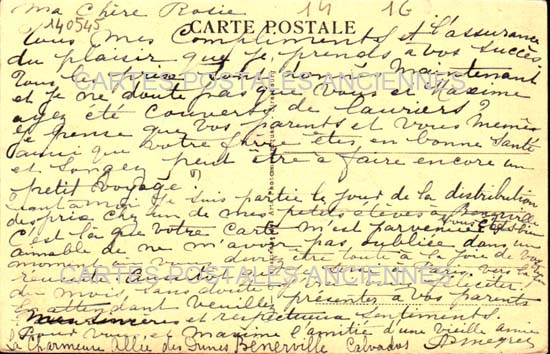 Ma Chère Rosie 14 16
140545
CARTE POSTALE
Tous mes Compliments et l'assurance
du plaisir que je prends à vos succès.
Tous les prix sont donnés Maintenant
CARTES POSTALES ANCIENNES
et je ne doute pas que vous et Maxime
ayez été couverts de lauriers?
Je pense que vos parents et vous mêmes
ainsi que votre êtes en bonne santé
et songez peut être à faire encore un
petit voyage?
Quant à moi je suis partie le jour de la distribution
des prix chez un de mes petits élèves à
C'est là que votre carte m'est parvenue
aimable de ne m'avoir pas oubliée dans un
moment où vous devez être toute à la joie de vos
CARTES POSTALES ANCIENNES
de mois sans doute
En attendant veuillez présenter à vos parents
mes sincères et respectueux sentiments.
vous et Maxime l'amitié d'une vieille amie
La Charmeuse Allée des Prunes Benerville Calvados